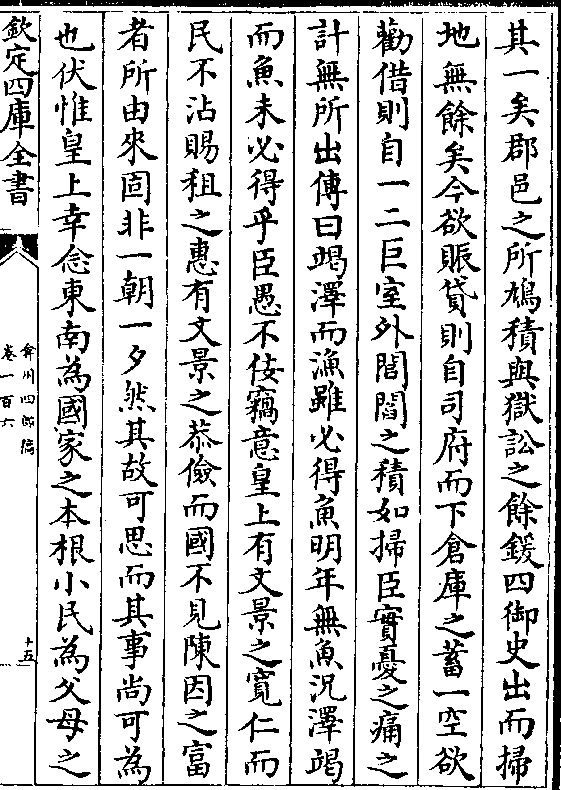 其一矣郡邑之所鳩積與獄訟之餘鍰四御史出而掃
地無餘矣今欲賑貸則自司府而下倉庫之蓄一空欲
勸借則自一二巨室外閭閻之積如掃臣實憂之痛之
計無所出傳曰竭澤而漁雖必得魚明年無魚況澤竭
而魚未必得乎臣愚不佞竊意皇上有文景之寛仁而
民不沾賜租之惠有文景之恭儉而國不見陳因之富
者所由來固非一朝一夕然其故可思而其事尚可為
也伏惟皇上幸念東南為國家之本根小民為父母之
欽定四庫全書
弇州四部稿
卷一百六
十五